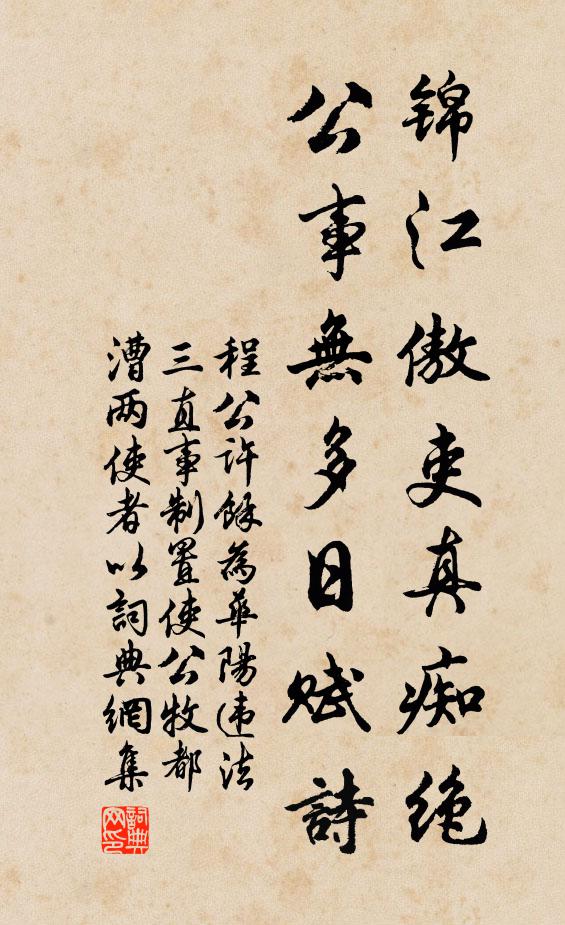 锦江傲吏真痴绝
公事無多日赋詩
程公許餘為華陽违法
三直事制置使公牧都
漕两使者以詞典網集
詞典网印